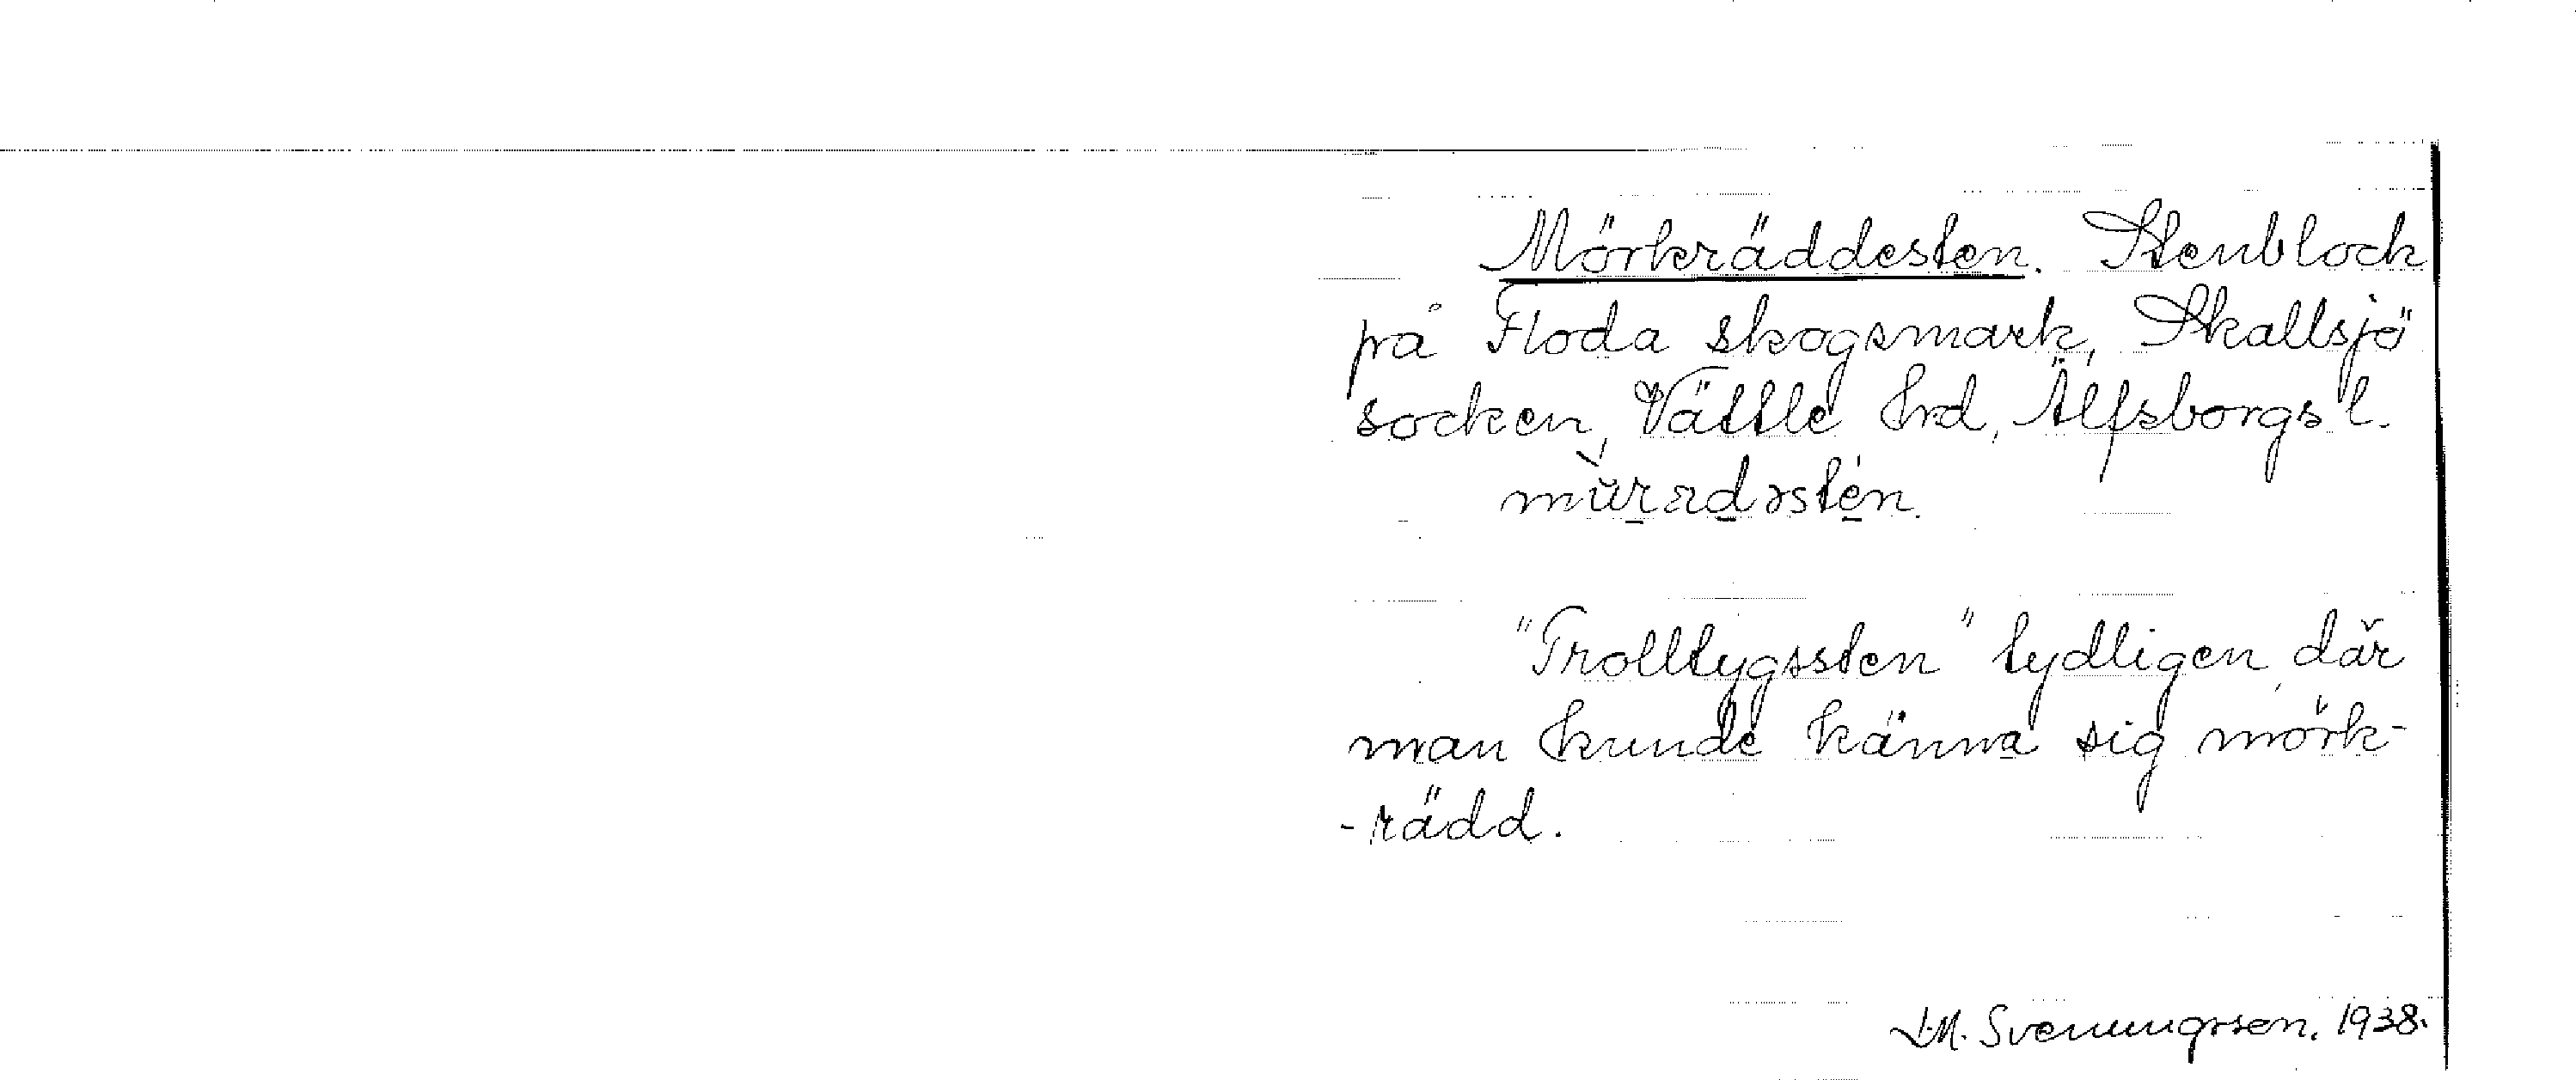 Mörkräddesten. Stenblock
på Floda skogsmark, Skallsjö
socken, Vättle hrd, Älfsborgs l.
"Trolltygssten" tydligen, där
man kunde känna sig mörk-
-rädd.
J.M. Svenungsson. 1938.